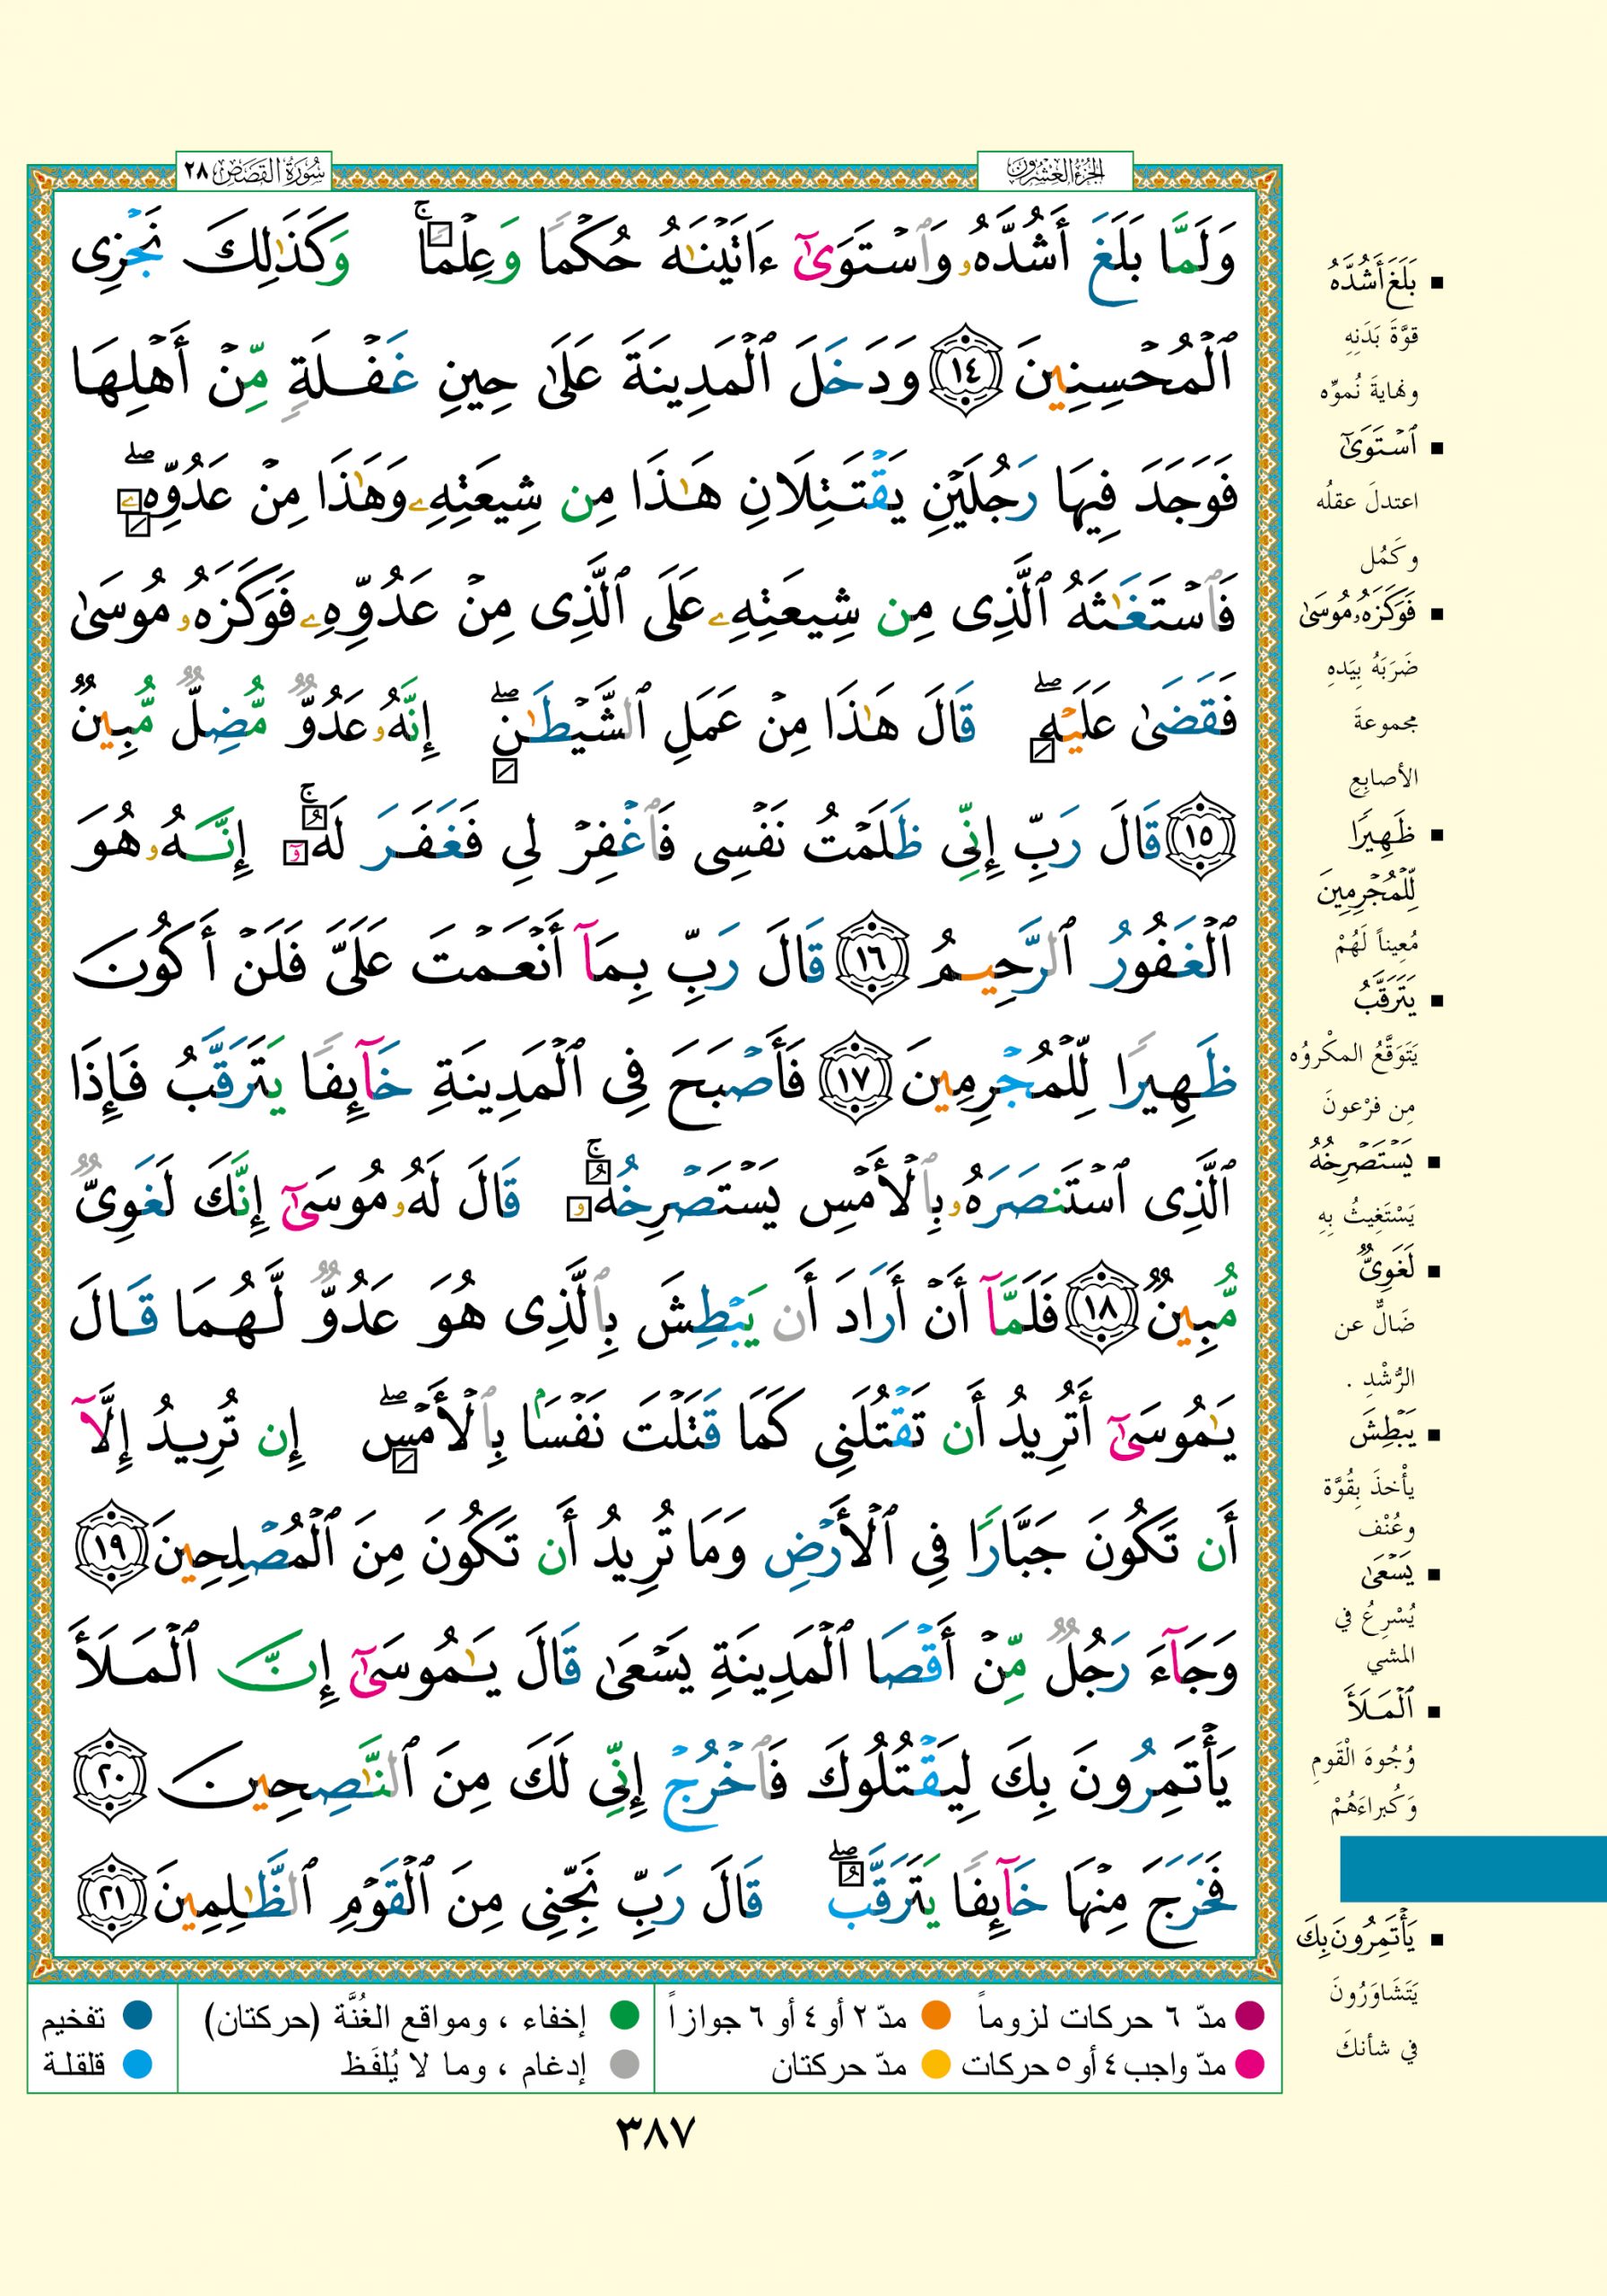 الجزء العشرون
سورة القصص ٢٨
وَلَمَّا بَلَغَ أَشُدَّهُۥ وَٱسۡتَوَىٰٓ ءَاتَيۡنَٰهُ حُكۡمٗا وَعِلۡمٗاۚ وَكَذَٰلِكَ نَجۡزِي
ٱلۡمُحۡسِنِينَ ١٤ وَدَخَلَ ٱلۡمَدِينَةَ عَلَىٰ حِينِ غَفۡلَةٖ مِّنۡ أَهۡلِهَا
فَوَجَدَ فِيهَا رَجُلَيۡنِ يَقۡتَتِلَانِ هَٰذَا مِن شِيعَتِهِۦ وَهَٰذَا مِنۡ عَدُوِّهِۦۖ
فَٱسۡتَغَٰثَهُ ٱلَّذِي مِن شِيعَتِهِۦ عَلَى ٱلَّذِي مِنۡ عَدُوِّهِۦ فَوَكَزَهُۥ مُوسَىٰ
فَقَضَىٰ عَلَيۡهِۖ قَالَ هَٰذَا مِنۡ عَمَلِ ٱلشَّيۡطَٰنِۖ إِنَّهُۥ عَدُوّٞ مُّضِلّٞ مُّبِينٞ
١٥ قَالَ رَبِّ إِنِّي ظَلَمۡتُ نَفۡسِي فَٱغۡفِرۡ لِي فَغَفَرَ لَهُۥٓۚ إِنَّهُۥ هُوَ
ٱلۡغَفُورُ ٱلرَّحِيمُ ١٦ قَالَ رَبِّ بِمَآ أَنۡعَمۡتَ عَلَيَّ فَلَنۡ أَكُونَ
ظَهِيرٗا لِّلۡمُجۡرِمِينَ ١٧ فَأَصۡبَحَ فِي ٱلۡمَدِينَةِ خَآئِفٗا يَتَرَقَّبُ فَإِذَا
ٱلَّذِي ٱسۡتَنصَرَهُۥ بِٱلۡأَمۡسِ يَسۡتَصۡرِخُهُۥۚ قَالَ لَهُۥ مُوسَىٰٓ إِنَّكَ لَغَوِيّٞ
مُّبِينٞ ١٨ فَلَمَّآ أَنۡ أَرَادَ أَن يَبۡطِشَ بِٱلَّذِي هُوَ عَدُوّٞ لَّهُمَا قَالَ
يَٰمُوسَىٰٓ أَتُرِيدُ أَن تَقۡتُلَنِي كَمَا قَتَلۡتَ نَفۡسَۢا بِٱلۡأَمۡسِۖ إِن تُرِيدُ إِلَّآ
أَن تَكُونَ جَبَّارٗا فِي ٱلۡأَرۡضِ وَمَا تُرِيدُ أَن تَكُونَ مِنَ ٱلۡمُصۡلِحِينَ ١٩
وَجَآءَ رَجُلٞ مِّنۡ أَقۡصَا ٱلۡمَدِينَةِ يَسۡعَىٰ قَالَ يَٰمُوسَىٰٓ إِنَّ ٱلۡمَلَأَ
يَأۡتَمِرُونَ بِكَ لِيَقۡتُلُوكَ فَٱخۡرُجۡ إِنِّي لَكَ مِنَ ٱلنَّٰصِحِينَ ٢٠
فَخَرَجَ مِنۡهَا خَآئِفٗا يَتَرَقَّبُۖ قَالَ رَبِّ نَجِّنِي مِنَ ٱلۡقَوۡمِ ٱلظَّٰلِمِينَ ٢١
بَلَغَ أَشُدَّهُ
قوَّةَ بَدَنِهِ
ونهايةَ نُموِّه
ٱسۡتَوَىٰٓ
اعتدلَ عقلُه
وكَمُل
فَوَكَزَهُۥ مُوسَىٰ
ضَرَبَهُ بِيَدهِ
مجموعةَ
الأصابِعِ
ظَهِيرٗا
لِّلۡمُجۡرِمِينَ
مُعِيناً لَهُمْ
يَتَرَقَّبُ
يَتَوَقَّعُ المكْروُه
مِن فرْعونَ
يَسۡتَصۡرِخُهُ
يَسْتَغِيثُ بِهِ
لَغَوِيّٞ
ضَالٌّ عن
الرُّشْدِ .
يَبۡطِشَ
يأْخذَ بِقُوَّة
وعُنْف
يَسۡعَىٰ
يُسْرِعُ في
المشي
ٱلۡمَلَأَ
وُجُوهَ الْقَومِ
وَكُبراءَهُمْ
يَأۡتَمِرُونَ بِكَ
يَتَشَاوَرُونَ
في شأنكَ
مدّ ٦ حركات لزوماً
مدّ ٢ أو ٤ أو ٦ جوازاً
إخفاء ، ومواقع الغُنَّة (حركتان)
تفخيم
مدّ واجب ٤ أو ٥ حركات
مدّ حركتان
إدغام ، وما لا يُلفَظ
قلقلة
٣٨٧